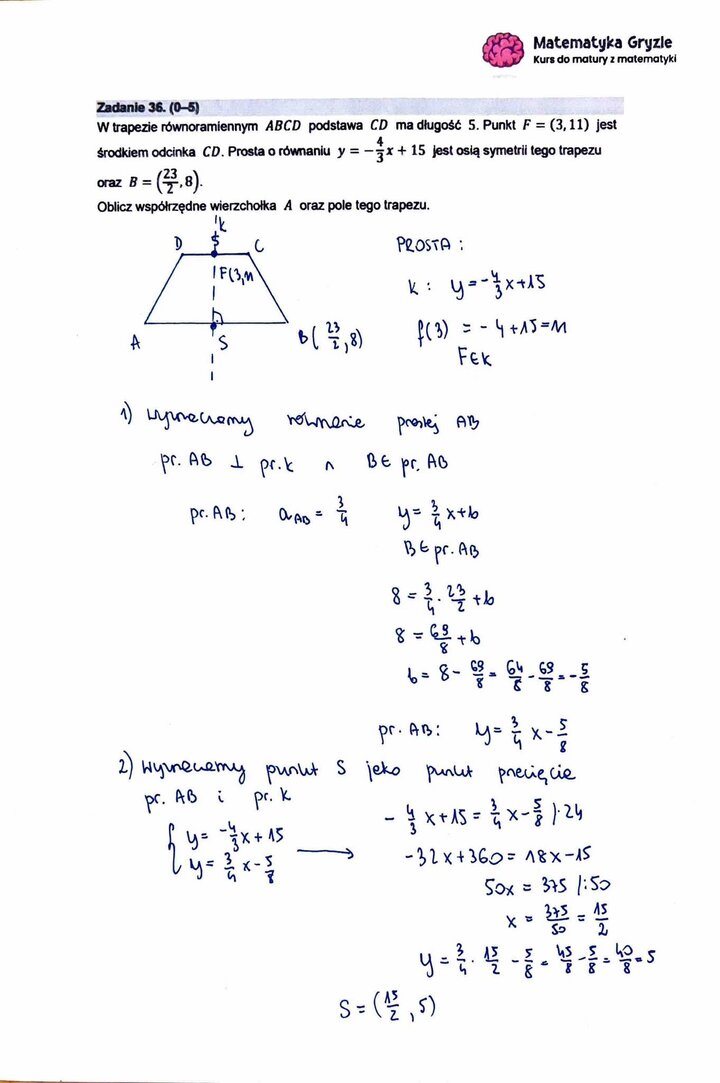 Matematyka Gryzie
Kurs do matury z matematyki
Zadanie 36. (0–5)
W trapezie równoramiennym ABCD podstawa CD ma długość 5. Punkt F = (3, 11) jest
środkiem odcinka CD. Prosta o równaniu y = −4/3x + 15 jest osią symetrii tego trapezu
oraz B = (23/2, 8).
Oblicz współrzędne wierzchołka A oraz pole tego trapezu.
k
D C
F(3,11
A S B(23/2, 8)
PROSTA :
k : y = -4/3x+15
f(3) = -4+15=11
F∈k
1) Wyznaczamy równanie prostej AB
pr. AB ⊥ pr. k ∧ B∈ pr. AB
pr. AB: a_AB = 3/4 y = 3/4 x+b
B∈pr. AB
8 = 3/4 · 23/2 + b
8 = 69/8 + b
b = 8 - 69/8 = 64/8 - 69/8 = -5/8
pr. AB: y = 3/4 x - 5/8
2) Wyznaczamy punkt S jako punkt przecięcie
pr. AB i pr. k
{ y = -4/3x+15
y = 3/4 x - 5/8 →
-4/3 x+15 = 3/4 x - 5/8 |·24
-32x+360 = 18x-15
50x = 375 |:50
x = 375/50 = 15/2
y = 3/4 · 15/2 - 5/8 = 45/8 - 5/8 = 40/8 = 5
S = (15/2, 5)